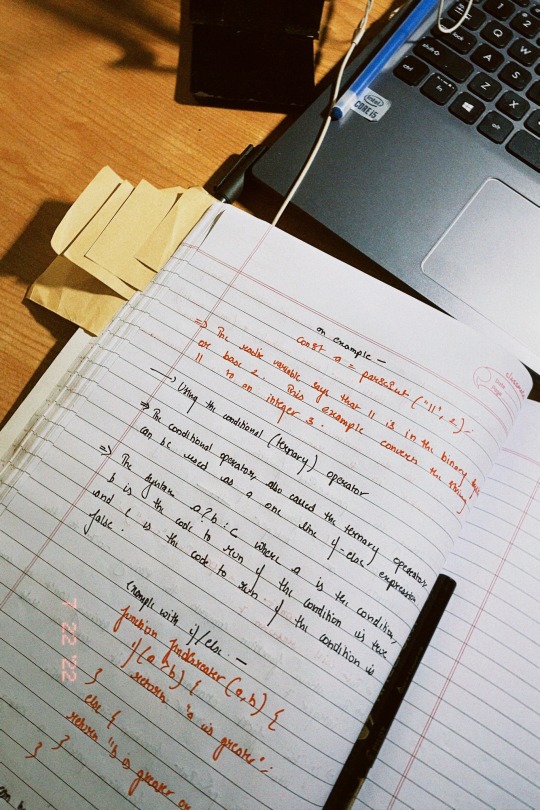 an example –
const a = parseInt ("11", 2);
=> The radix variable says that 11 is in the binary
or base 2. This example converts the string
11 to an integer 3.
→ Using the conditional (ternary) operator
=> The conditional operator, also called the ternary operator,
can be used as a one line if-else expression
=> The syntax a ? b : c where a is the condition,
b is the code to run if the condition is true
and c is the code to run if the condition is
false.
Example with if/else. –
function findGreater (a, b) {
if (a > b) {
return "a is greater";
}
else {
return "b is greater or
}
}
7 22 '22
intel
CORE i5
shift
ctrl
fn
alt
Q
W
A
S
Z
X